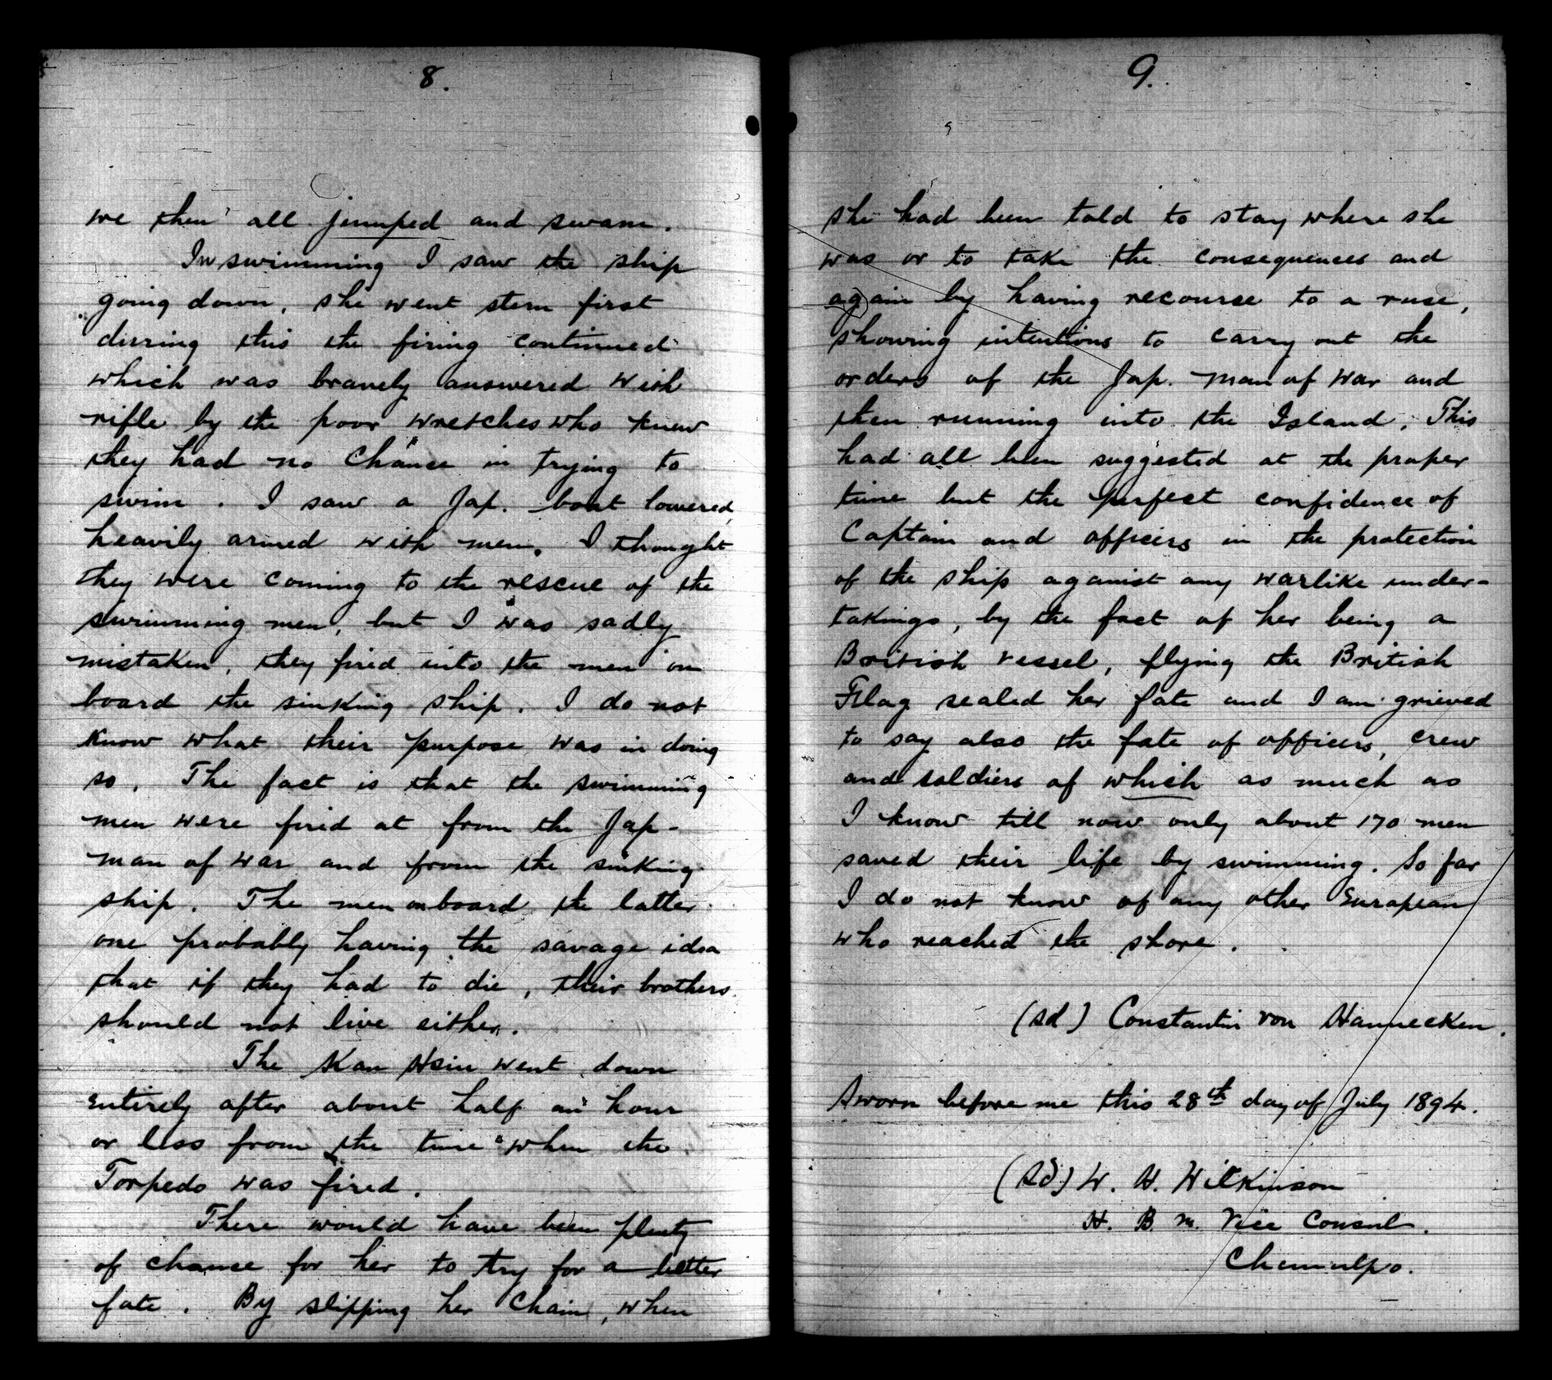 8.
we then all jumped and swam.
In swimming I saw the ship
going down, she went stern first
during this the firing continued
which was bravely answered with
rifle by the poor wretches who knew
they had no chance in trying to
swim. I saw a Jap. boat lowered,
heavily armed with men. I thought
they were coming to the rescue of the
swimming men, but I was sadly
mistaken, they fired into the men on
board the sinking ship. I do not
know what their purpose was in doing
so. The fact is that the swimming
men were fired at from the Jap-
man of war and from the sinking
ship. The men on board the latter
one probably having the savage idea
that if they had to die, their brothers
should not live either.
The Kow Hsin went down
entirely after about half an hour
or less from the time when the
Torpedo was fired.
There would have been plenty
of chance for her to try for a better
fate. By slipping her Chain, when
9.
she had been told to stay where she
was or to take the consequences and
again by having recourse to a ruse,
showing intentions to carry out the
orders of the Jap. man of war and
then running into the Island. This
had all been suggested at the proper
time but the perfect confidence of
Captain and officers in the protection
of the ship against any warlike under-
takings, by the fact of her being a
British vessel, flying the British
Flag sealed her fate and I am grieved
to say also the fate of officers, crew
and soldiers of which as much as
I know till now only about 170 men
saved their life by swimming. So far
I do not know of any other European
who reached the shore.
(sd) Constantin von Hannecken.
Sworn before me this 28th day of July 1894.
(Sd) W. H. Wilkinson
H. B. M. Vice Consul.
Chemulpo.